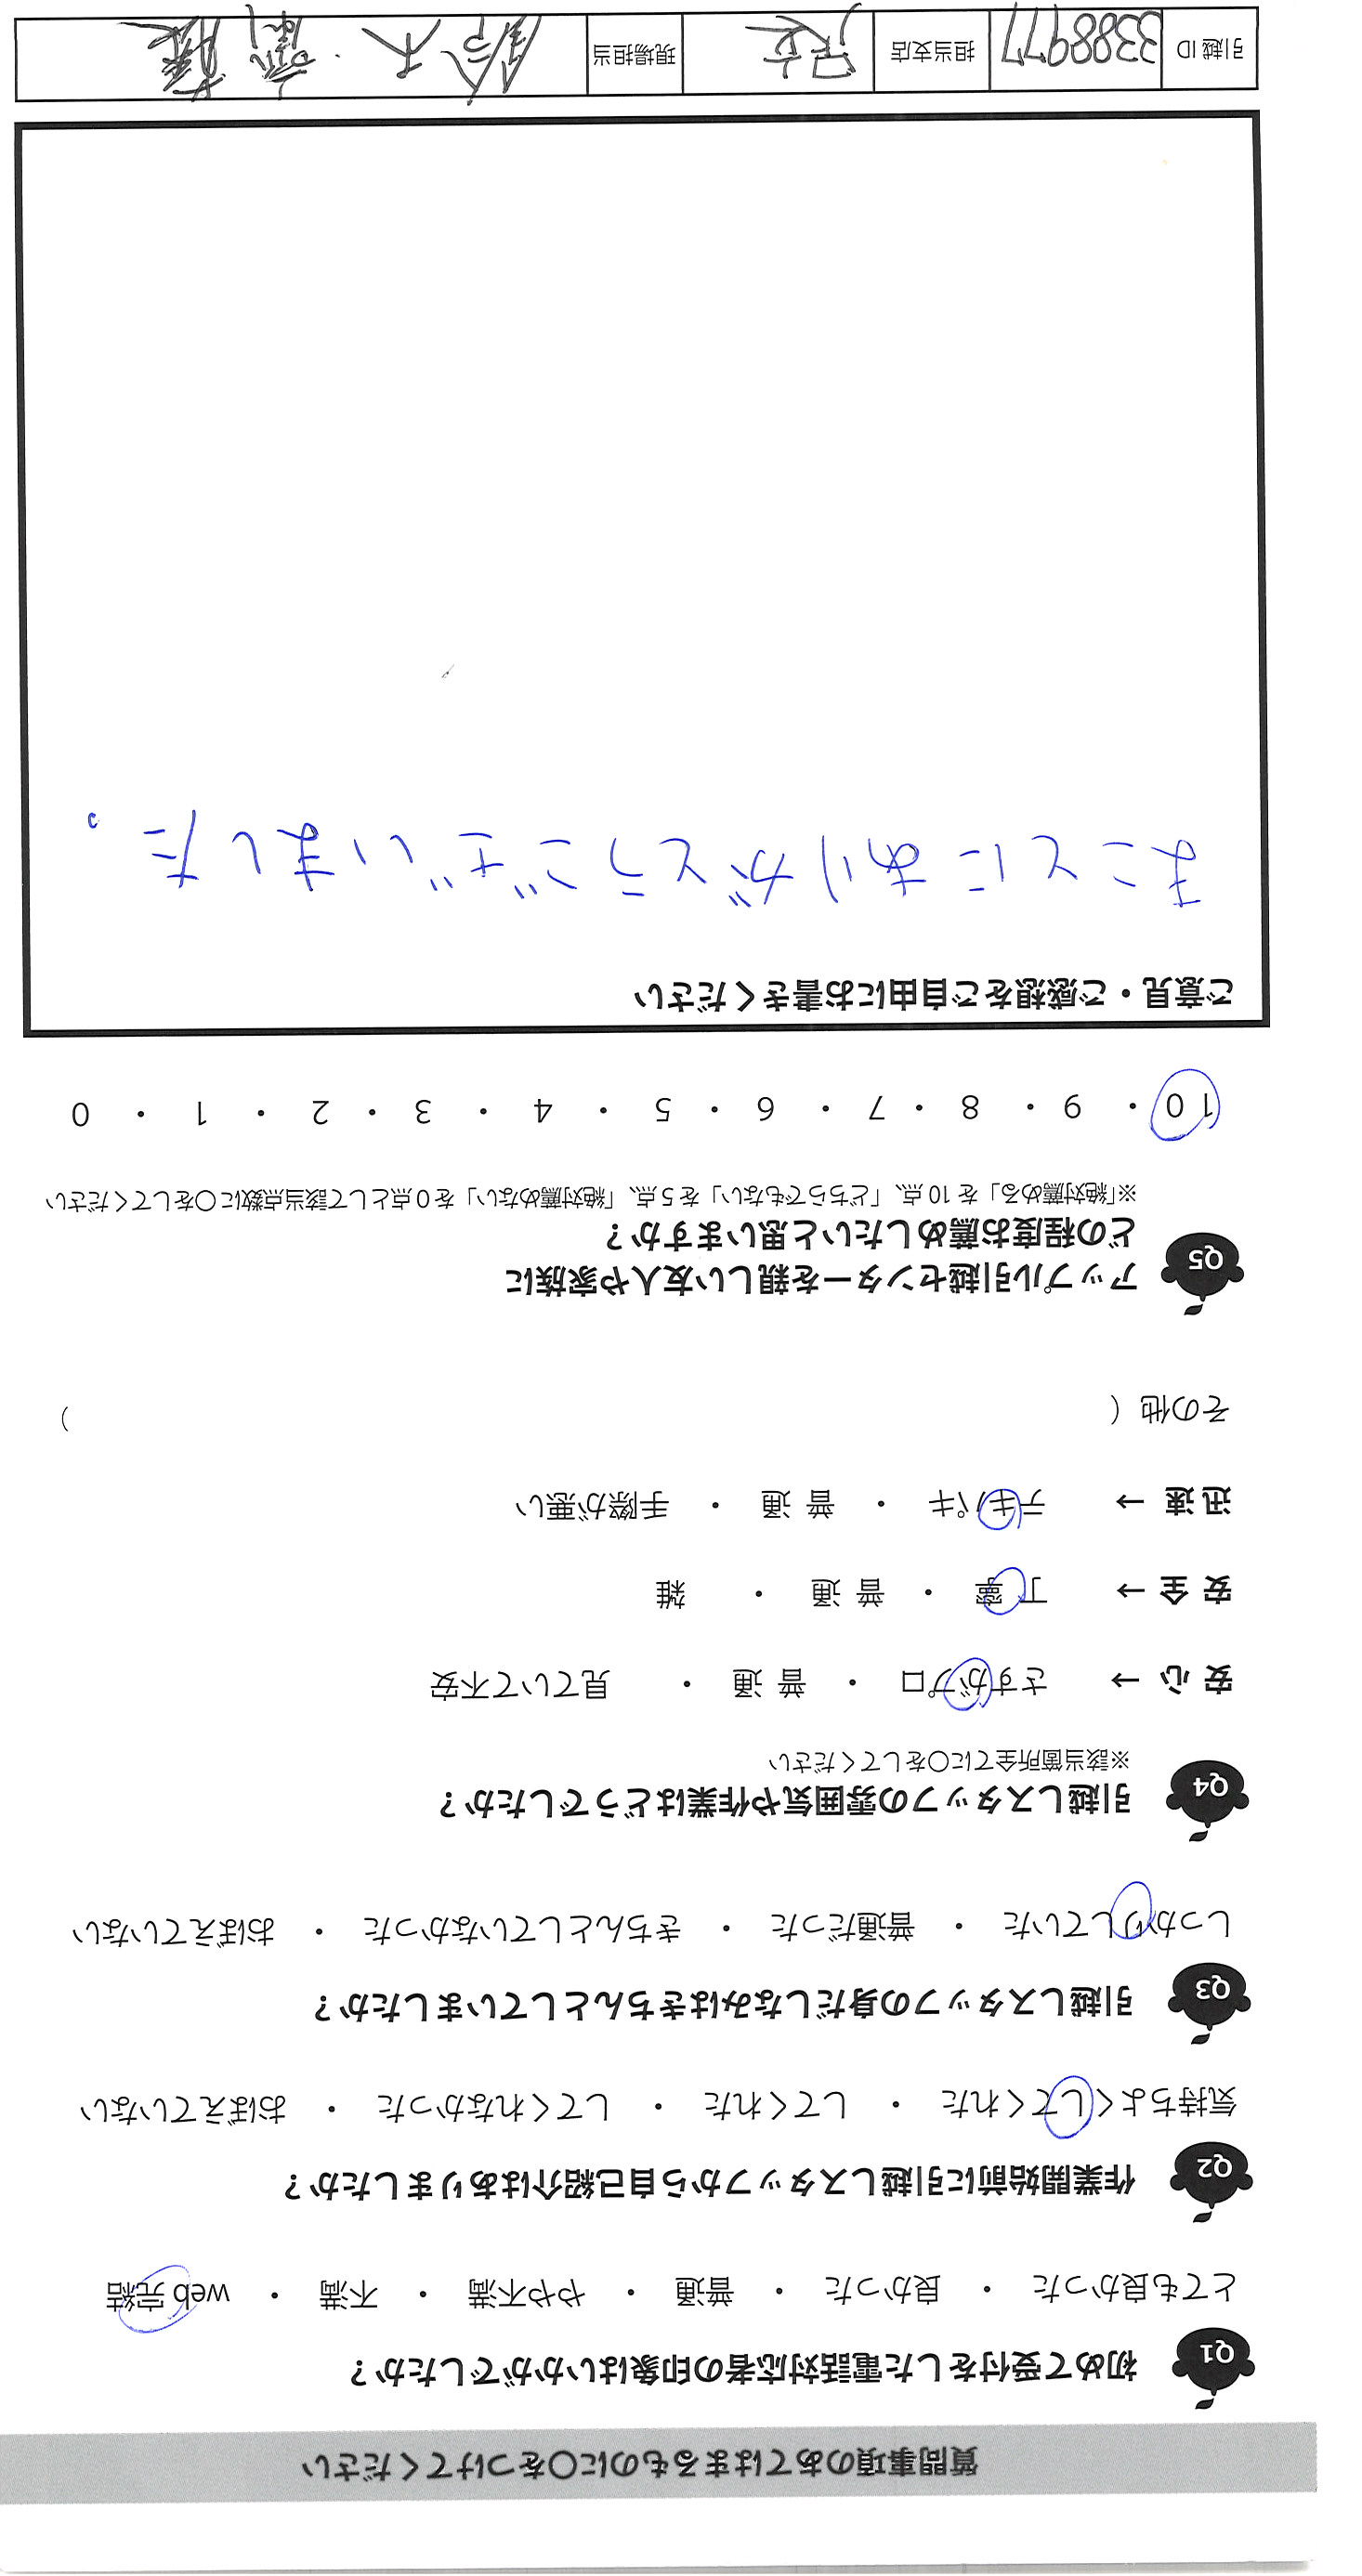 質問事項のあてはまるものに〇をつけてください
Q1 初めて受付をした電話対応者の印象はいかがでしたか？
とても良かった ・ 良かった ・ 普通 ・ やや不満 ・ 不満 ・ web 完結
Q2 作業開始前に引越しスタッフから自己紹介はありましたか？
気持ちよくしてくれた ・ してくれた ・ してくれなかった ・ おぼえていない
Q3 引越しスタッフの身だしなみはきちんとしていましたか？
しっかりしていた ・ 普通だった ・ きちんとしていなかった ・ おぼえていない
Q4 引越しスタッフの雰囲気や作業はどうでしたか？
※該当箇所全てに〇をしてください
安 心 → さすがプロ ・ 普 通 ・ 見ていて不安
安 全 → 丁 寧 ・ 普 通 ・ 雑
迅 速 → テキパキ ・ 普 通 ・ 手際が悪い
その他（ ）
Q5 アップル引越センターを親しい友人や家族に
どの程度お薦めしたいと思いますか？
※「絶対薦める」を 10 点、「どちらでもない」を 5 点、「絶対薦めない」を 0 点として該当点数に〇をしてください
10 ・ 9 ・ 8 ・ 7 ・ 6 ・ 5 ・ 4 ・ 3 ・ 2 ・ 1 ・ 0
ご意見・ご感想をご自由にお書きください
まことにありがとうございました。
引越 ID 3388977 担当支店 足立 現場担当 鈴木・齋藤